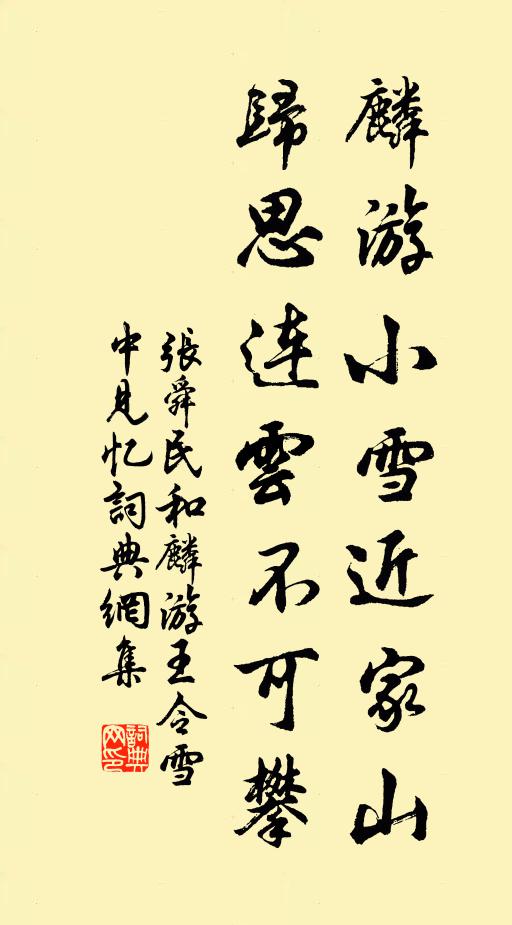 麟游小雪近家山
歸思連雲不可攀
張舜民和麟游王令雪
中見忆詞典網集
詞典
网印